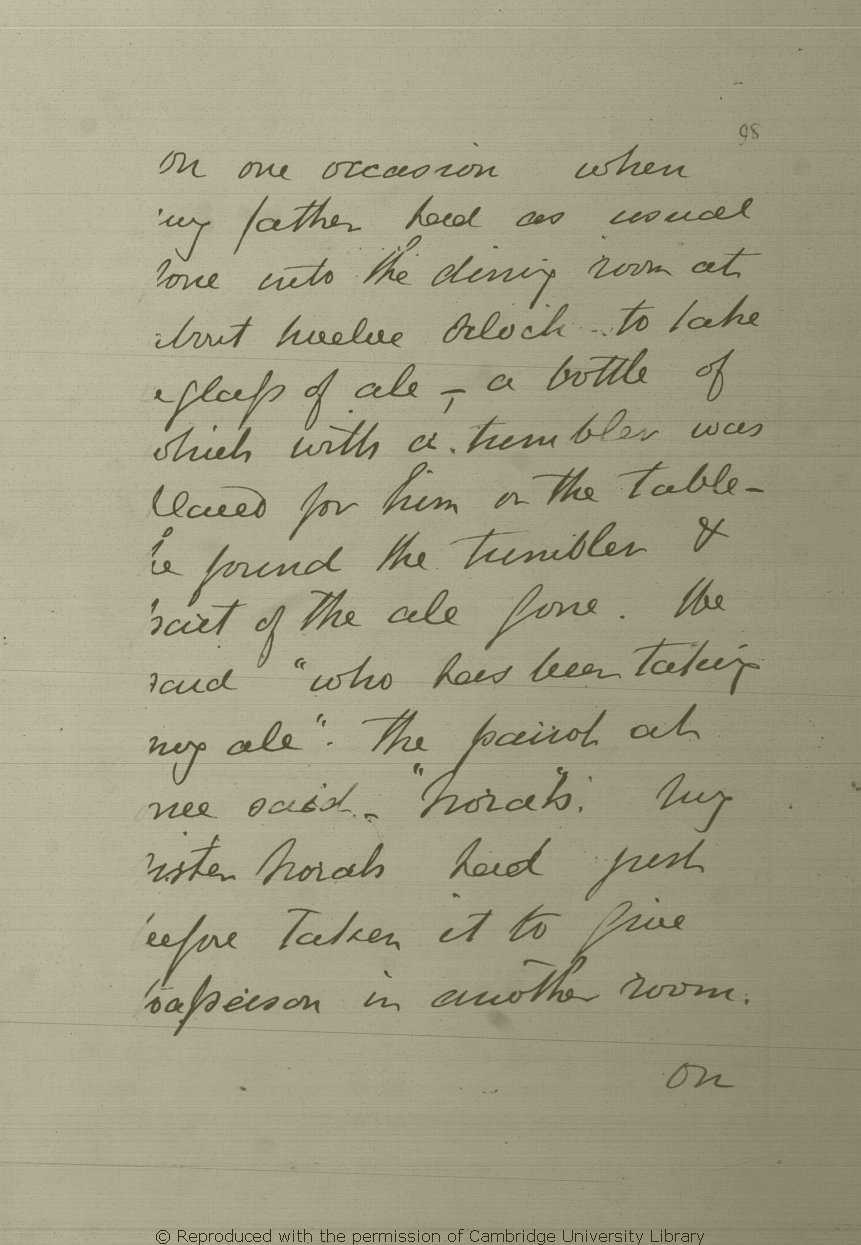 98
On one occasion when
my father had as usual
gone into the dining room at
about twelve oclock to take
a glass of ale – a bottle of
which with a tumbler was
placed for him on the table –
he found the tumbler &
part of the ale gone. He
said "who has been taking
my ale". The parrot at
once said – "Norah". My
sister Norah had just
before taken it to give
to a person in another room.
On
© Reproduced with the permission of Cambridge University Library